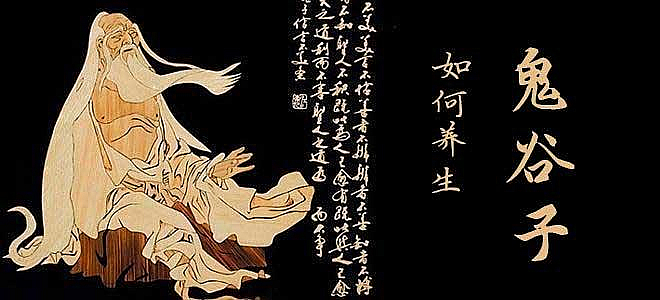 鬼谷子
如何养生
不美美言不信善者不辯辯者不善知者不博
不知聖人不積既以為人己愈有既以與人己愈
之道利而不害聖人之道為而不爭